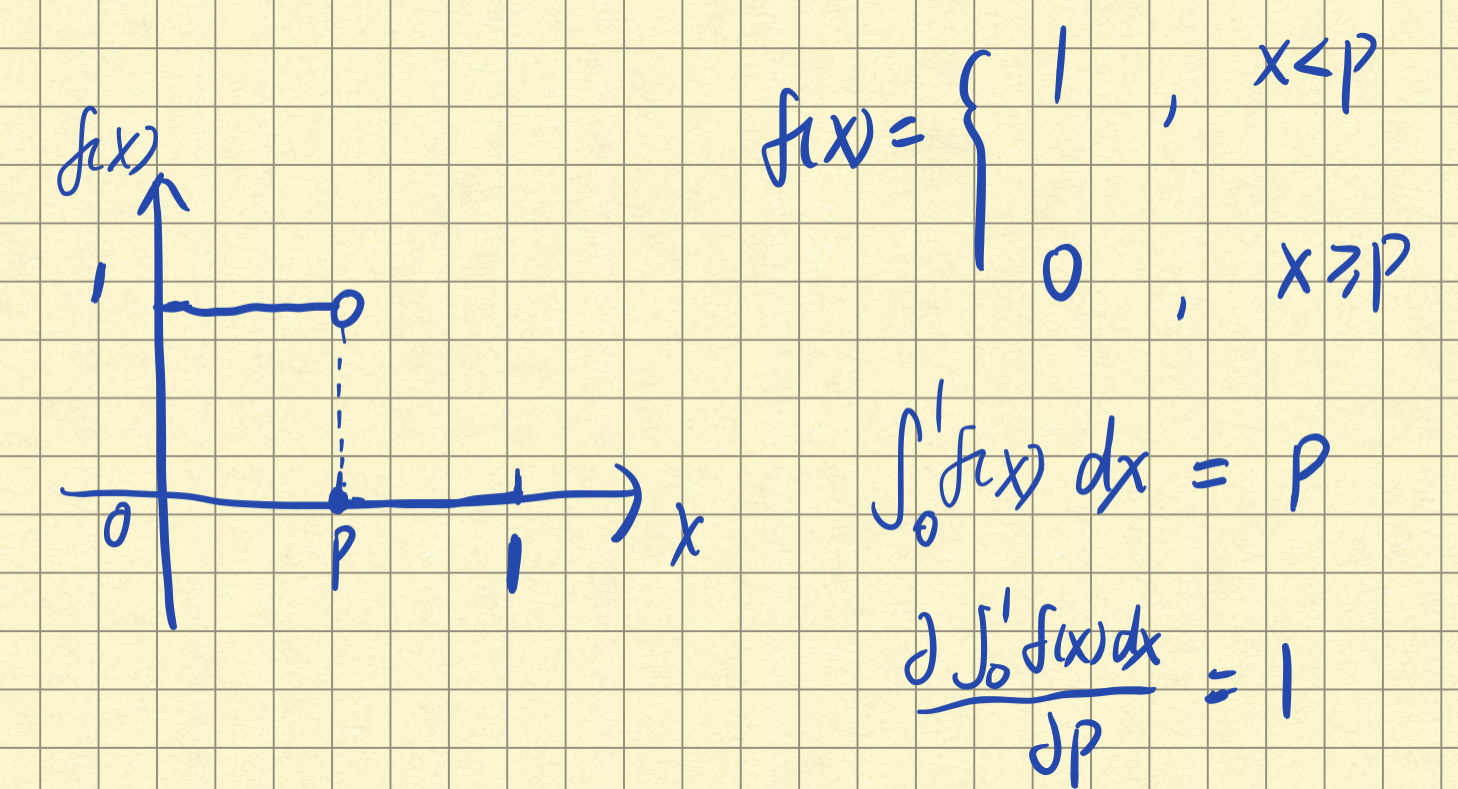 f(x)
1
0
P
1
x
f(x) = { 1 , x<P
0 , x≥P
∫₀¹ f(x) dx = P
∂∫₀¹ f(x) dx / ∂P = 1